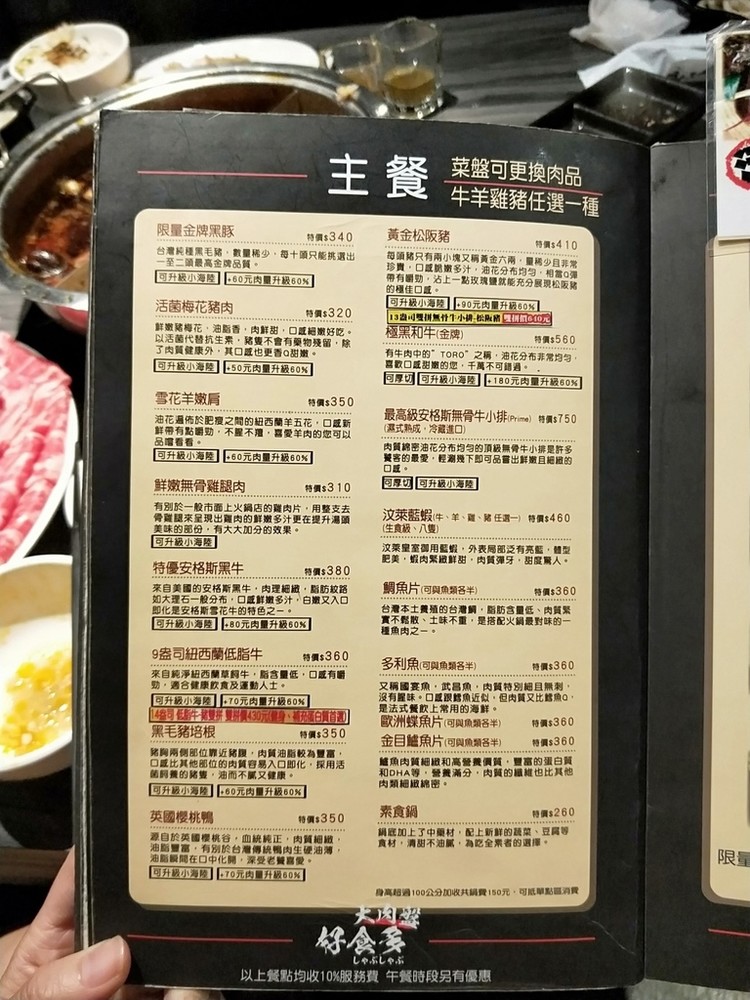 主餐
菜盤可更換肉品
牛羊雞豬任選一種
限量金牌黑豚 特價$340
台灣純種黑毛豬，數量稀少，每十頭只能挑選出
一至二頭最高金牌品質。
可升級小海陸 +60元肉量升級60%
活菌梅花豬肉 特價$320
鮮嫩豬梅花，油脂香，肉鮮甜，口感細嫩好吃。
以活菌代替抗生素，豬隻不會有藥物殘留，除
了肉質健康外，其口感也更香Q甜嫩。
可升級小海陸 +50元肉量升級60%
雪花羊嫩肩 特價$350
油花遍佈於肥瘦之間的紐西蘭羊五花，口感新
鮮帶有點嚼勁，不腥不羶，喜愛羊肉的您可以
品嚐看看。
可升級小海陸 +60元肉量升級60%
鮮嫩無骨雞腿肉 特價$310
有別於一般市面上火鍋店的雞肉片，用整支去
骨雞腿來呈現出雞肉的鮮嫩多汁更在提升湯頭
美味的部份，有大大加分的效果。
可升級小海陸
特優安格斯黑牛 特價$380
來自美國的安格斯黑牛，肉理細緻，脂肪紋路
如大理石一般分布，口感鮮嫩多汁，白嫩又入口
即化是安格斯雪花牛的特色之一。
可升級小海陸 +80元肉量升級60%
9盎司紐西蘭低脂牛 特價$360
來自純淨紐西蘭草飼牛，脂含量低，口感有嚼
勁，適合健康飲食及運動人士。
可升級小海陸 +70元肉量升級60%
14盎司 低脂牛+豬雙拼 雙拼價430元(健身、補充蛋白質首選)
黑毛豬培根 特價$350
豬胸兩側部位靠近豬腹，肉質油脂較為豐富，
口感比其他部位的肉質容易入口即化，採用活
菌飼養的豬隻，油而不膩又健康。
可升級小海陸 +60元肉量升級60%
英國櫻桃鴨 特價$350
源自於英國櫻桃谷，血統純正，肉質細緻，
油脂豐富，有別於台灣傳統鴨肉生硬油薄，
油脂瞬間在口中化開，深受老饕喜愛。
可升級小海陸 +70元肉量升級60%
黃金松阪豬 特價$410
每頭豬只有兩小塊又稱黃金六兩，量稀少且非常
珍貴，口感脆嫩多汁，油花分布均勻，相當Q彈
帶有嚼勁，沾上一點玫瑰鹽就能充分展現松阪豬
的極佳口感。
可升級小海陸 +90元肉量升級60%
13盎司雙拼無骨牛小排+松阪豬 雙拼價640元
極黑和牛(金牌) 特價$560
有牛肉中的"TORO"之稱，油花分布非常均勻，
喜歡口感甜嫩的您，千萬不可錯過。
可厚切 可升級小海陸 +180元肉量升級60%
最高級安格斯無骨牛小排(Prime) 特價$750
(濕式熟成，冷藏進口)
肉質綿密油花分布均勻的頂級無骨牛小排是許多
饕客的最愛，輕涮幾下即可品嘗出鮮嫩且細緻的
口感。
可厚切 可升級小海陸
汶萊藍蝦(牛、羊、雞、豬 任選一) 特價$460
(生食級、八隻)
汶萊皇室御用藍蝦，外表局部泛有亮藍，體型
肥美，蝦肉緊緻鮮甜，肉質彈牙，甜度驚人。
鯛魚片(可與魚類各半) 特價$360
台灣本土養殖的台灣鯛，脂肪含量低、肉質緊
實不鬆散、土味不重，是搭配火鍋最對味的一
種魚肉之一。
多利魚(可與魚類各半) 特價$360
又稱國宴魚，武昌魚，肉質特別細且無刺，
沒有腥味。口感跟鱈魚近似，但肉質又比鱈魚Q，
是法式餐飲上常用的海鮮。
歐洲蝶魚片(可與魚類各半) 特價$360
金目鱸魚片(可與魚類各半) 特價$360
鱸魚肉質細緻和高營養價質，豐富的蛋白質
和DHA等，營養滿分，肉質的纖維也比其他
肉類細緻綿密。
素食鍋 特價$260
鍋底加上了中藥材，配上新鮮的蔬菜、豆屬等
食材，清甜不油膩，為吃全素者的選擇。
身高超過100公分加收共鍋費150元，可抵單點區消費
大肉盤
好食多
しゃぶしゃぶ
以上餐點均收10%服務費 午餐時段另有優惠
限量